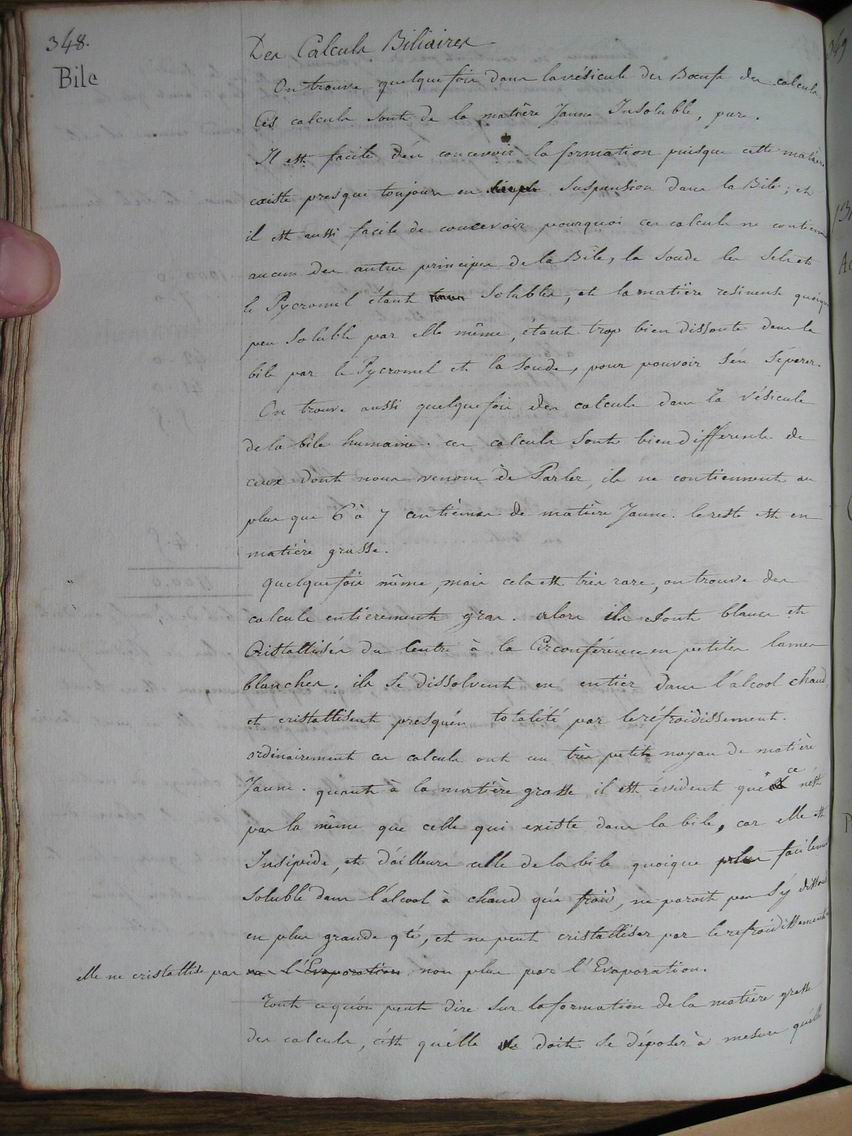 348.
Bile
Des Calculs Biliaires
On trouve quelquefois dans la vésicule des Boeufs des calculs
Ces calculs sont de la matière Jaune Insoluble, pure.
Il est facile d'en concevoir la formation puisque cette matière
existe presque toujours en suspension dans la Bile; et
il est aussi facile de concevoir pourquoi ces calculs ne contiennent
aucun des autres principes de la Bile, la Soude les Sels et
le Pycromel étant Solubles, et la matière resineuse quoique
peu soluble par elle même, étant trop bien dissoute dans la
bile par le Pycromel et la Soude, pour pouvoir s'en séparer.
On trouve aussi quelquefois des calculs dans la vésicule
de la bile humaine. ces calculs sont bien différents de
ceux dont nous venons de Parler, ils ne contiennent au
plus que 6 à 7 centièmes de matière Jaune. le reste est en
matière grasse.
quelquefois même, mais cela est très rare, on trouve des
calculs entièrement gras. alors ils sont blancs et
Cristallisés du Centre à la Circonférence en petites lames
blanches. ils se dissolvent en entier dans l'alcool chaud
et cristallisent presqu'en totalité par le réfroidissement.
ordinairement ces calculs ont un très petit noyau de matière
Jaune. quant à la matière grasse il est évident que ce n'est
pas la même que celle qui existe dans la bile, car elle est
Insipide, et d'ailleurs celle de la bile quoique plus facilement
soluble dans l'alcool à chaud qu'à froid, ne parait pas s'y dissoudre
en plus grande qté, et ne peut cristalliser par le refroidissement
elle ne cristallise pas non plus par l'Evaporation.
Tout ce qu'on peut dire sur la formation de la matière grasse
des calculs, c'est qu'elle doit se déposer à mesure qu'elle